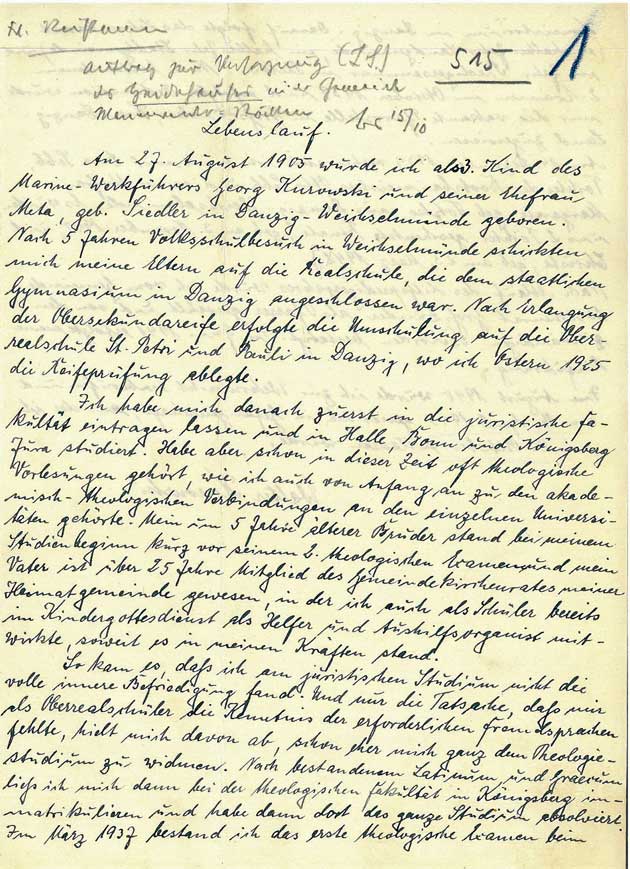 515
1
Antrag zur Versorgung (LS)
des in der Gemeinde
15/10
Lebenslauf.
Am 27. August 1905 wurde ich als 3. Kind des
Marine-Werkführers Georg Kurowski und seiner Ehefrau
Meta, geb. Siedler in Danzig-Weichselmünde geboren.
Nach 5 Jahren Volksschulbesuch in Weichselmünde schickten
mich meine Eltern auf die Realschule, die dem staatlichen
Gymnasium in Danzig angeschlossen war. Nach Erlangung
der Obersekundareife erfolgte die Umschulung auf die Ober-
realschule St. Petri und Pauli in Danzig, wo ich Ostern 1925
die Reifeprüfung ablegte.
Ich habe mich danach zuerst in die juristische Fa-
kultät eintragen lassen und in Halle, Bonn und Königsberg
Jura studiert. Habe aber schon in dieser Zeit oft theologische
Vorlesungen gehört, wie ich auch von Anfang an zu den akade-
misch-theologischen Verbindungen an den einzelnen Universi-
täten gehörte. Mein um 5 Jahre älterer Bruder stand bei meinem
Studienbeginn kurz vor seinem 2. theologischen Examen und mein
Vater ist über 25 Jahre Mitglied des Gemeindekirchenrates meiner
Heimatgemeinde gewesen, in der ich auch als Schüler bereits
im Kindergottesdienst als Helfer und Aushilfsorganist mit-
wirkte, soweit es in meinen Kräften stand.
So kam es, daß ich am juristischen Studium nicht die
volle innere Befriedigung fand. Und nur die Tatsache, daß mir
als Oberrealschüler die Kenntnis der erforderlichen Fremdsprachen
fehlte, hielt mich davon ab, schon eher mich ganz dem Theologie-
studium zu widmen. Nach bestandenem Latinum und Graecum
ließ ich mich dann bei der theologischen Fakultät in Königsberg im-
matrikulieren und habe dann dort das ganze Studium absolviert.
Im März 1937 bestand ich das erste theologische Examen beim